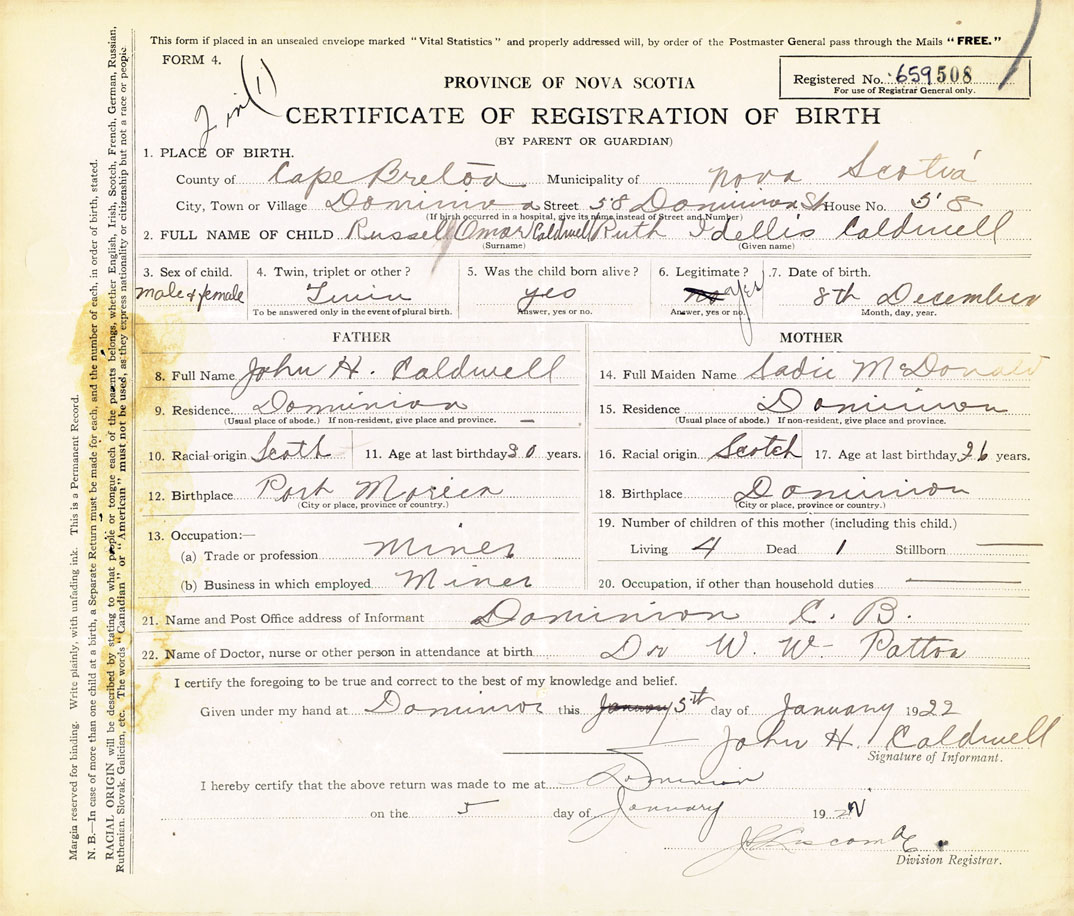 This form if placed in an unsealed envelope marked "Vital Statistics" and properly addressed will, by order of the Postmaster General pass through the Mails "FREE."
FORM 4.
(1)
PROVINCE OF NOVA SCOTIA
Registered No. 659 508
For use of Registrar General only.
CERTIFICATE OF REGISTRATION OF BIRTH
(BY PARENT OR GUARDIAN)
1. PLACE OF BIRTH.
County of Cape Breton Municipality of Nova Scotia
City, Town or Village Dominion Street 58 Dominion St House No. 58
(If birth occurred in a hospital, give its name instead of Street and Number)
2. FULL NAME OF CHILD Russell Omar Caldwell Ruth Idellis Caldwell
(Surname) (Given name)
3. Sex of child. 4. Twin, triplet or other? 5. Was the child born alive? 6. Legitimate? 7. Date of birth.
male & female Twin yes no Yes 8th December
To be answered only in the event of plural birth. Answer, yes or no. Answer, yes or no. Month, day, year.
FATHER
8. Full Name John H. Caldwell
9. Residence Dominion
(Usual place of abode.) If non-resident, give place and province.
10. Racial origin Scoth 11. Age at last birthday 30 years.
12. Birthplace Port Morien
(City or place, province or country.)
13. Occupation:—
(a) Trade or profession Miner
(b) Business in which employed Miner
MOTHER
14. Full Maiden Name Sadie McDonald
15. Residence Dominion
(Usual place of abode.) If non-resident, give place and province.
16. Racial origin Scotch 17. Age at last birthday 26 years.
18. Birthplace Dominion
(City or place, province or country.)
19. Number of children of this mother (including this child.)
Living 4 Dead 1 Stillborn
20. Occupation, if other than household duties
21. Name and Post Office address of Informant Dominion C. B.
22. Name of Doctor, nurse or other person in attendance at birth Dr W. W. Patton
I certify the foregoing to be true and correct to the best of my knowledge and belief.
Given under my hand at Dominion this January 5th day of January 1922
John H. Caldwell
Signature of Informant.
I hereby certify that the above return was made to me at Dominion
on the 5 day of January 1922
Division Registrar.
Margin reserved for binding. Write plainly, with unfading ink. This is a Permanent Record.
N. B.—In case of more than one child at a birth, a Separate Return must be made for each, and the number of each, in order of birth, stated.
RACIAL ORIGIN will be described by stating to what people or tongue each of the parents belongs, whether English, Irish, Scotch, French, German, Russian,
Ruthenian, Slovak, Galician, etc. The words "Canadian" or "American" must not be used, as they express nationality or citizenship but not a race or people.